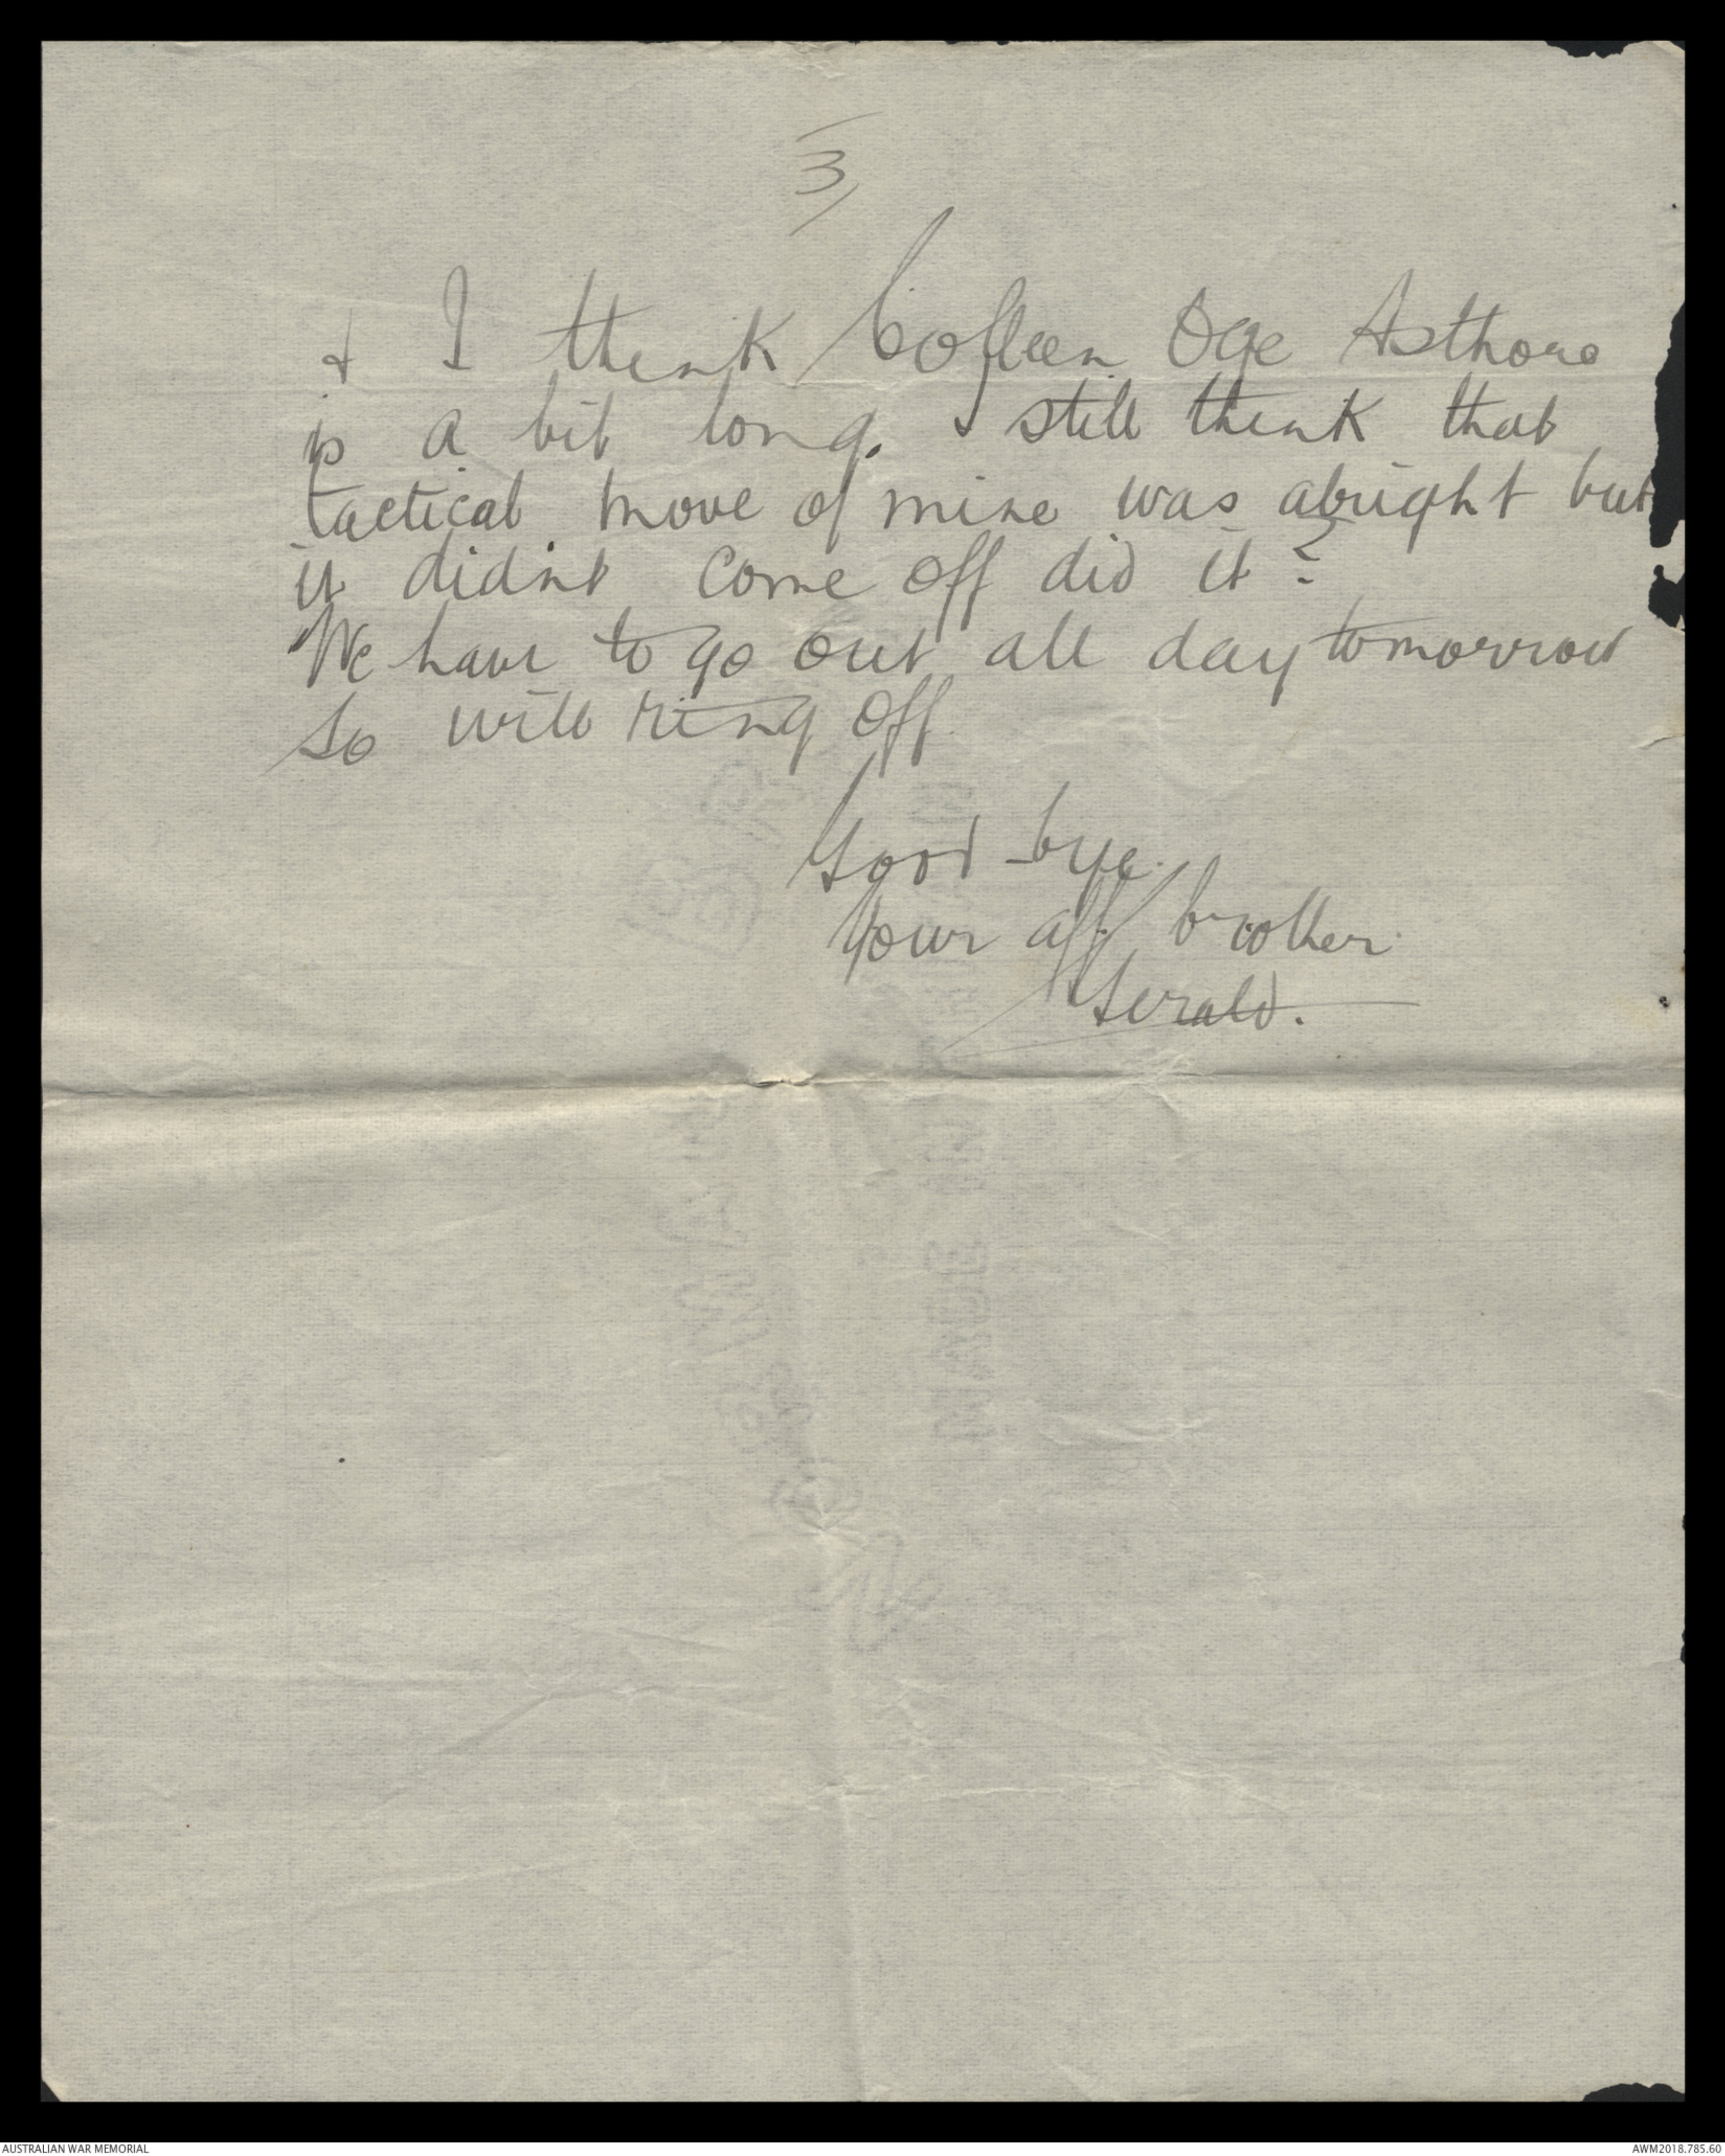 3/
& I think Colleen Oge Asthore
is a bit long. I still think that
tactical move of mine was alright but
it didn't come off did it?
We have to go out all day tomorrow
so will ring off.
Good-bye.
Your aff. brother
Gerald.
AUSTRALIAN WAR MEMORIAL
AWM2018.785.60